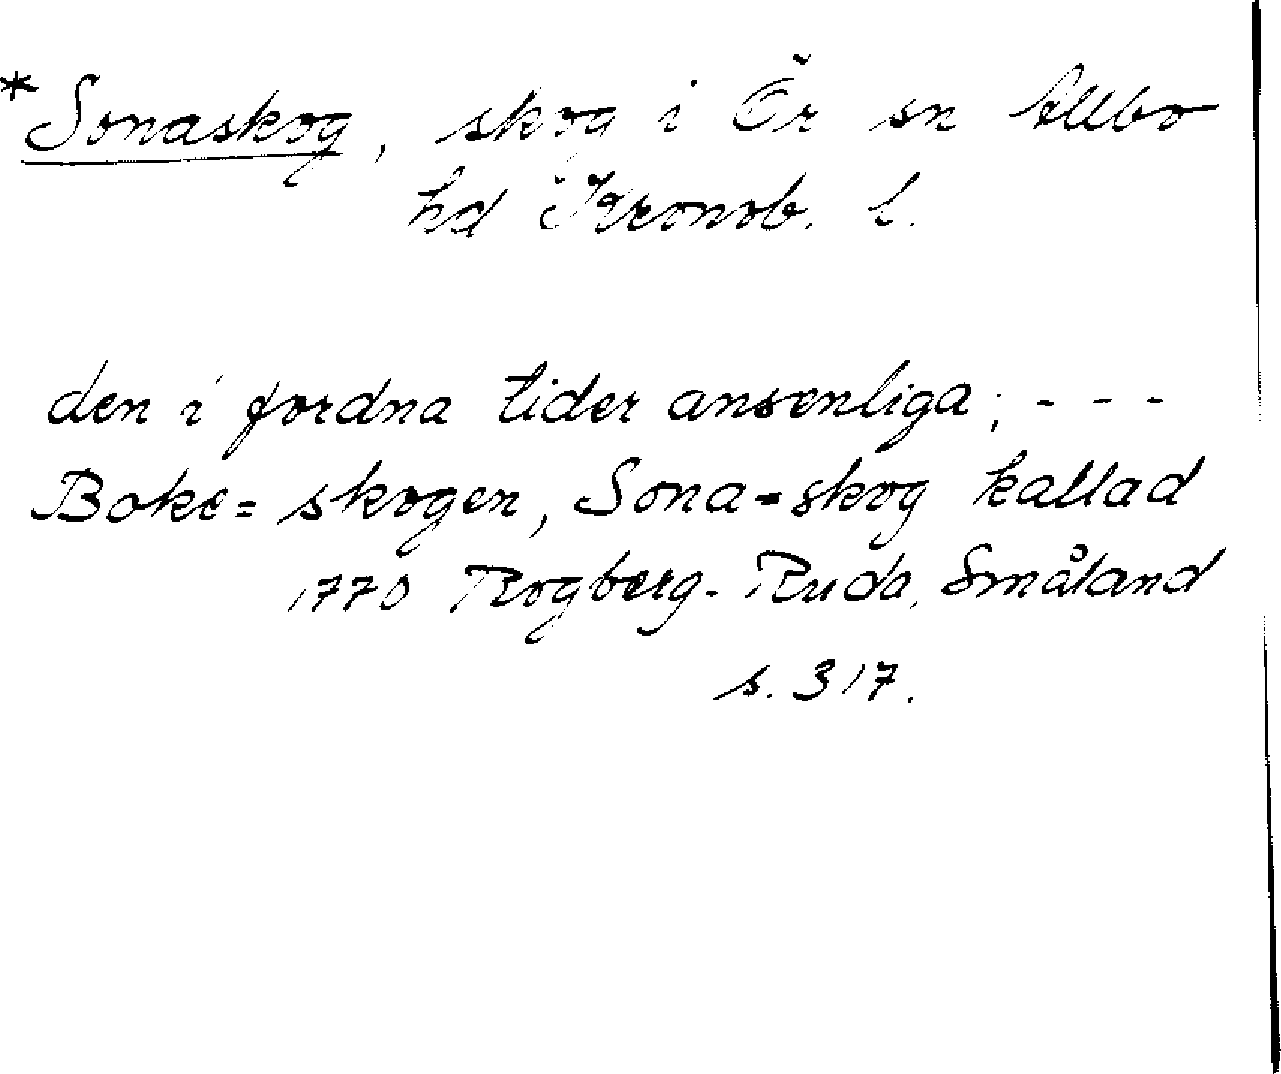 *Sonaskog, skog i Ör sn Allbo
hd Kronob. l.
den i fordna tider ansenliga; - - -
Boke=skogen, Sona-skog kallad
1770 Rogberg-Ruda, Småland
s. 317.